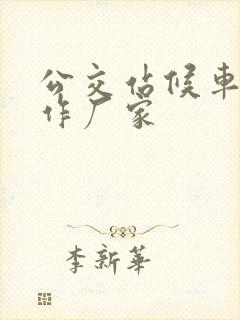 公交站候车
作厂家
李新華